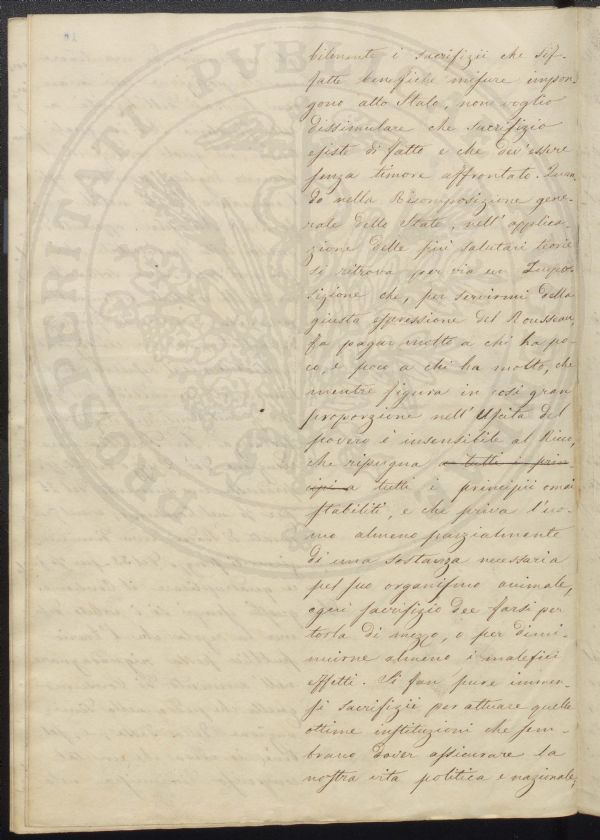 bilmente i sacrifizii che sif-
fatte benefiche misure impon-
gono allo Stato, non voglio
dissimulare che sacrifizio
esiste di fatto e che dev'essere
senza timore affrontato. Quan-
do nella Ricomposizione gene-
rale dello Stato, nell'applica-
zione delle più salutari teorie
si ritrova per via un Impo-
sizione che, per servirmi della
giusta espressione del Rousseau,
fa pagar molto a chi ha po-
co, e poco a chi ha molto, che
mentre figura in così gran
proporzione nell'Uscita del
povero è insensibile al Ricco,
che ripugna a tutti i prin
cipi a tutti i principii omai
stabiliti, e che priva l'uo-
mo almeno parzialmente
di una sostanza necessaria
pel suo organismo animale,
ogni sacrifizio dee farsi per
torla di mezzo, o per dimi-
nuirne almeno i malefici
effetti. Si fan pure immen-
si sacrifizii per attuare quelle
ottime instituzioni che sem-
brano dover assicurare la
nostra vita politica e nazionale,
PROSPERITATI PUBL